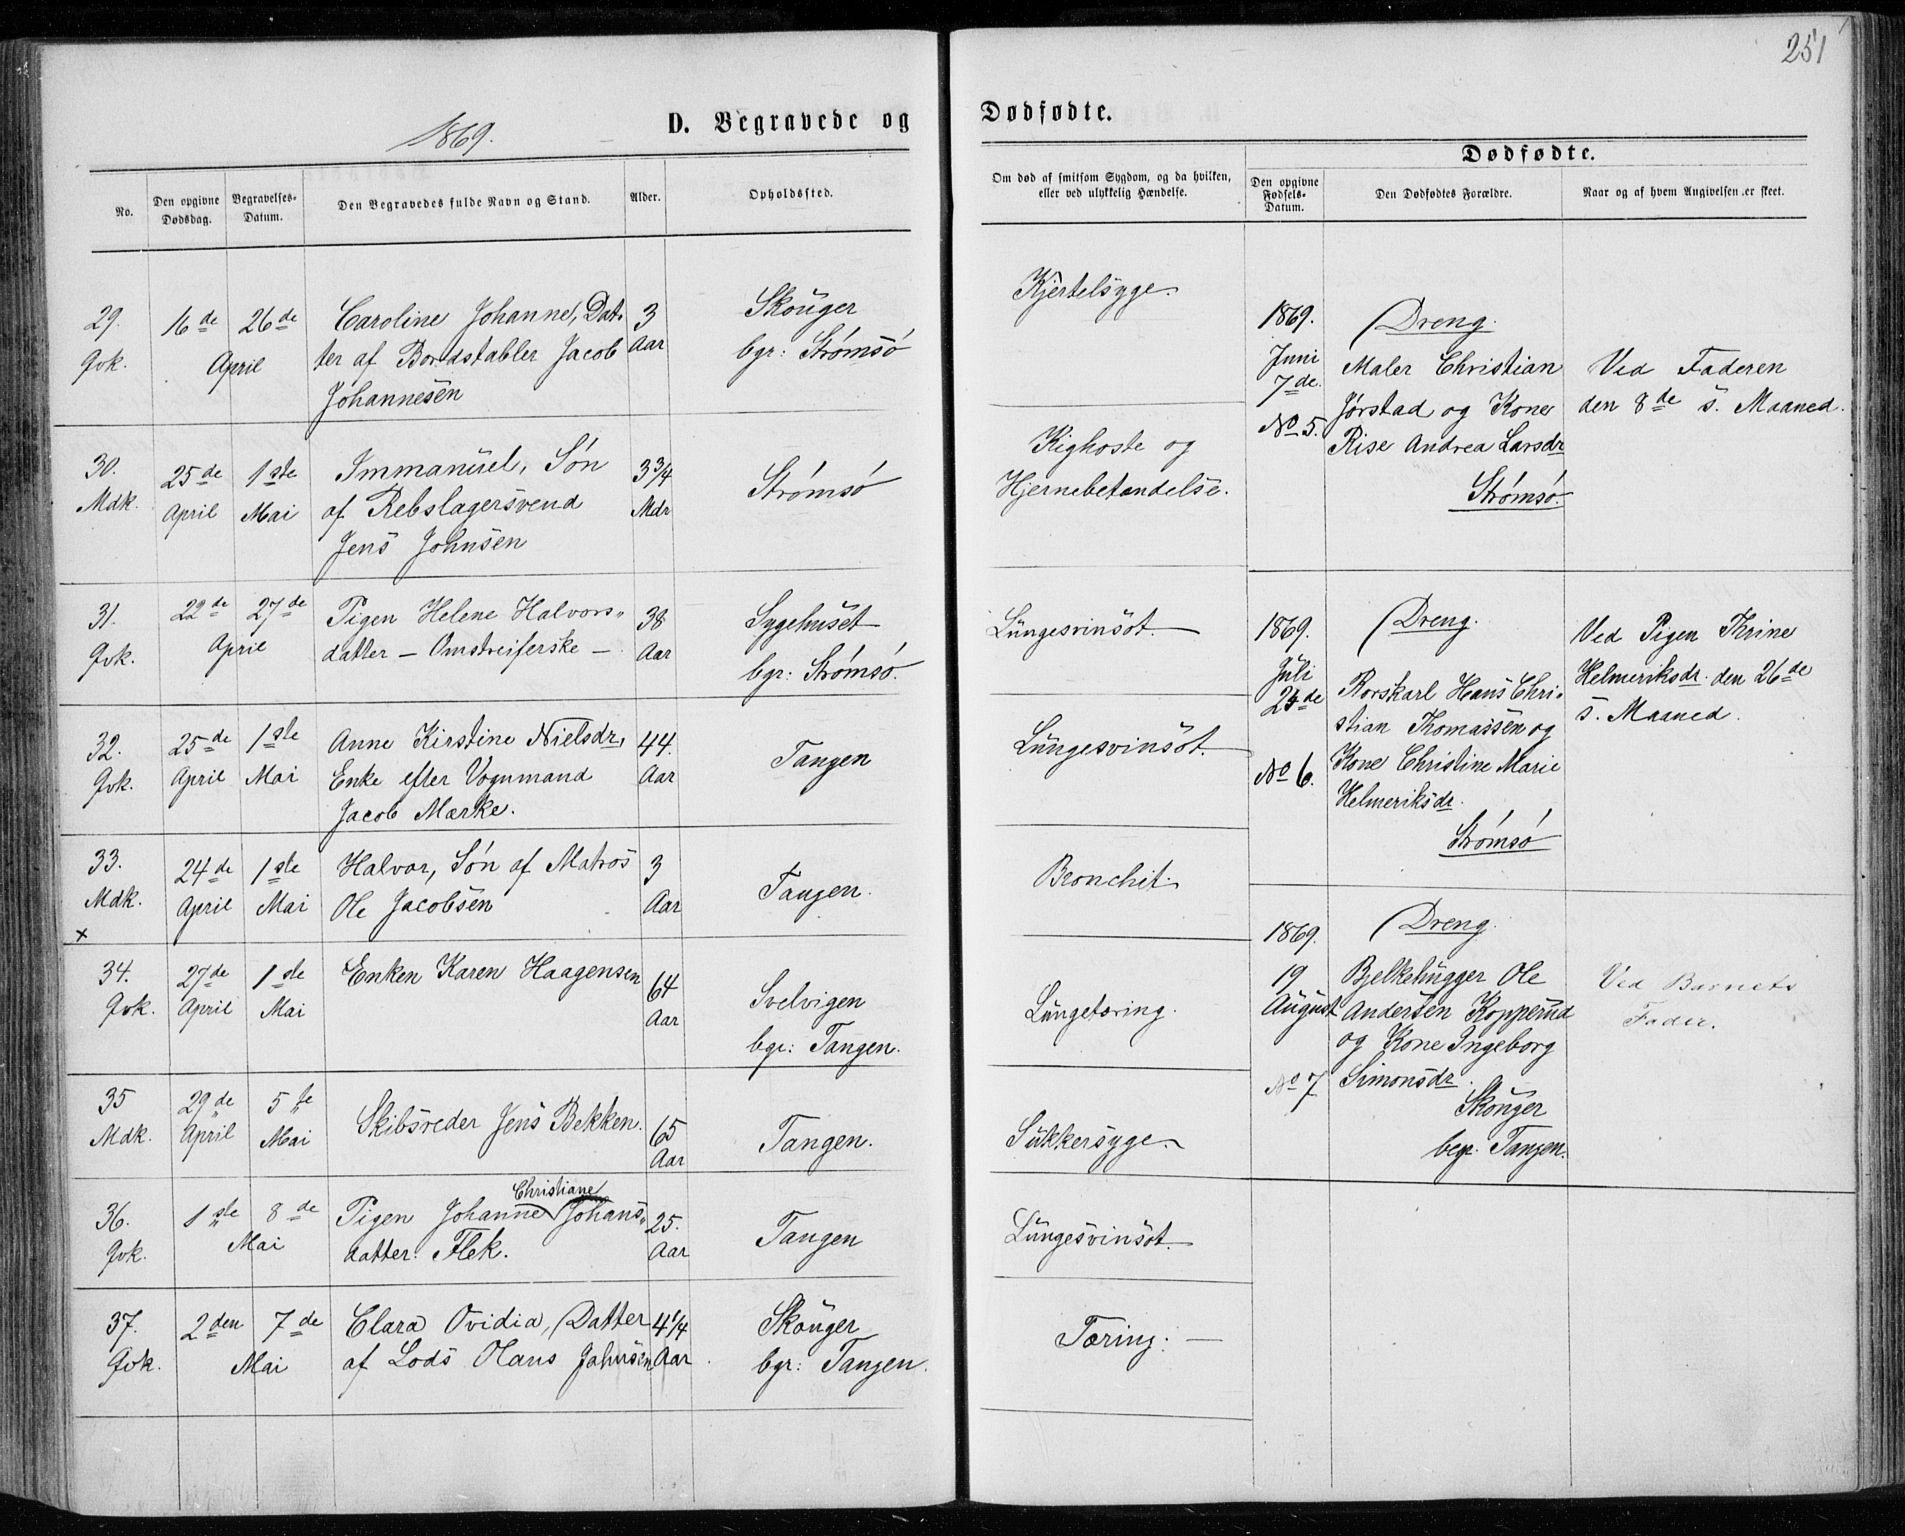 251
1869.
D. Begravede og
Dødfødte.
No.
Den opgivne Dødsdag.
Begravelses-Datum.
Den Begravedes fulde Navn og Stand.
Alder.
Opholdssted.
Om død af smitsom Sygdom, og da hvilken, eller ved ulykkelig Hændelse.
Dødfødte.
Den opgivne Fødsels-Datum.
Den Dødfødtes Forældre.
Naar og af hvem Angivelsen er skeet.
29. Qvk.
16de 26de April
Caroline Johanne, Dat-
ter af Bordstabler Jacob
Johannesen
3 Aar
Skouger
bgr: Strømsø
Kjertelsyge.
30. Mdk.
25de April
1ste Mai
Immanuel, Søn
af Rebslagersvend
Jens Johnsen
3 3/4 Mdr
Strømsø
Kighoste og
Hjernebetændelse.
31. Qvk.
22de 27de April
Pigen Helene Halvors-
datter - Omstreiferske -
38 Aar
Sygehuset
bgr: Strømsø.
Lungesvinsot.
32. Qvk.
25de April
1ste Mai
Anne Kirstine Nielsdr,
Enke efter Vognmand
Jacob Mærke.
44. Aar
Tangen
Lungesvinsot.
33. Mdk.
24de April
1ste Mai
Halvor, Søn af Matros
Ole Jacobsen
3 Aar
Tangen.
Bronchit.
x
34. Qvk.
27de April
1ste Mai
Enken Karen Haagensen
64 Aar
Svelvigen
bgr: Tangen.
Lungetæring.
35 Mdk.
29de April
5te Mai
Skibsreder Jens Bekken.
65 Aar
Tangen.
Sukkersyge.
36. Qvk.
1ste 8de Mai
Christiane
Pigen Johanne Johans-
datter Flek.
25. Aar
Tangen
Lungesvinsot.
37. Qvk.
2den 7de Mai
Clara Ovidia, Datter
af Lods Olaus Johnsen
4 1/4 Aar
Skouger
bgr: Tangen.
Tæring. -
1869.
Juni
7de.
No 5.
Dreng.
Maler Christian
Jørstad og Kone
Rise Andrea Larsdr
Strømsø.
Ved Faderen
den 8de s. Maaned.
1869.
Juli
25de
No 6.
Dreng.
Rorskarl Hans Chri-
stian Thomassen og
Kone Christine Marie
Helmeriksdr.
Strømsø
Ved Pigen Thrine
Helmeriksdr. den 26de
s. Maaned.
1869.
19
August
No 7
Dreng.
Bjelkehugger Ole
Andersen Kopperud
og Kone Ingeborg
Simonsdr.
Skouger
begr. Tangen.
Ved Barnets
Fader.